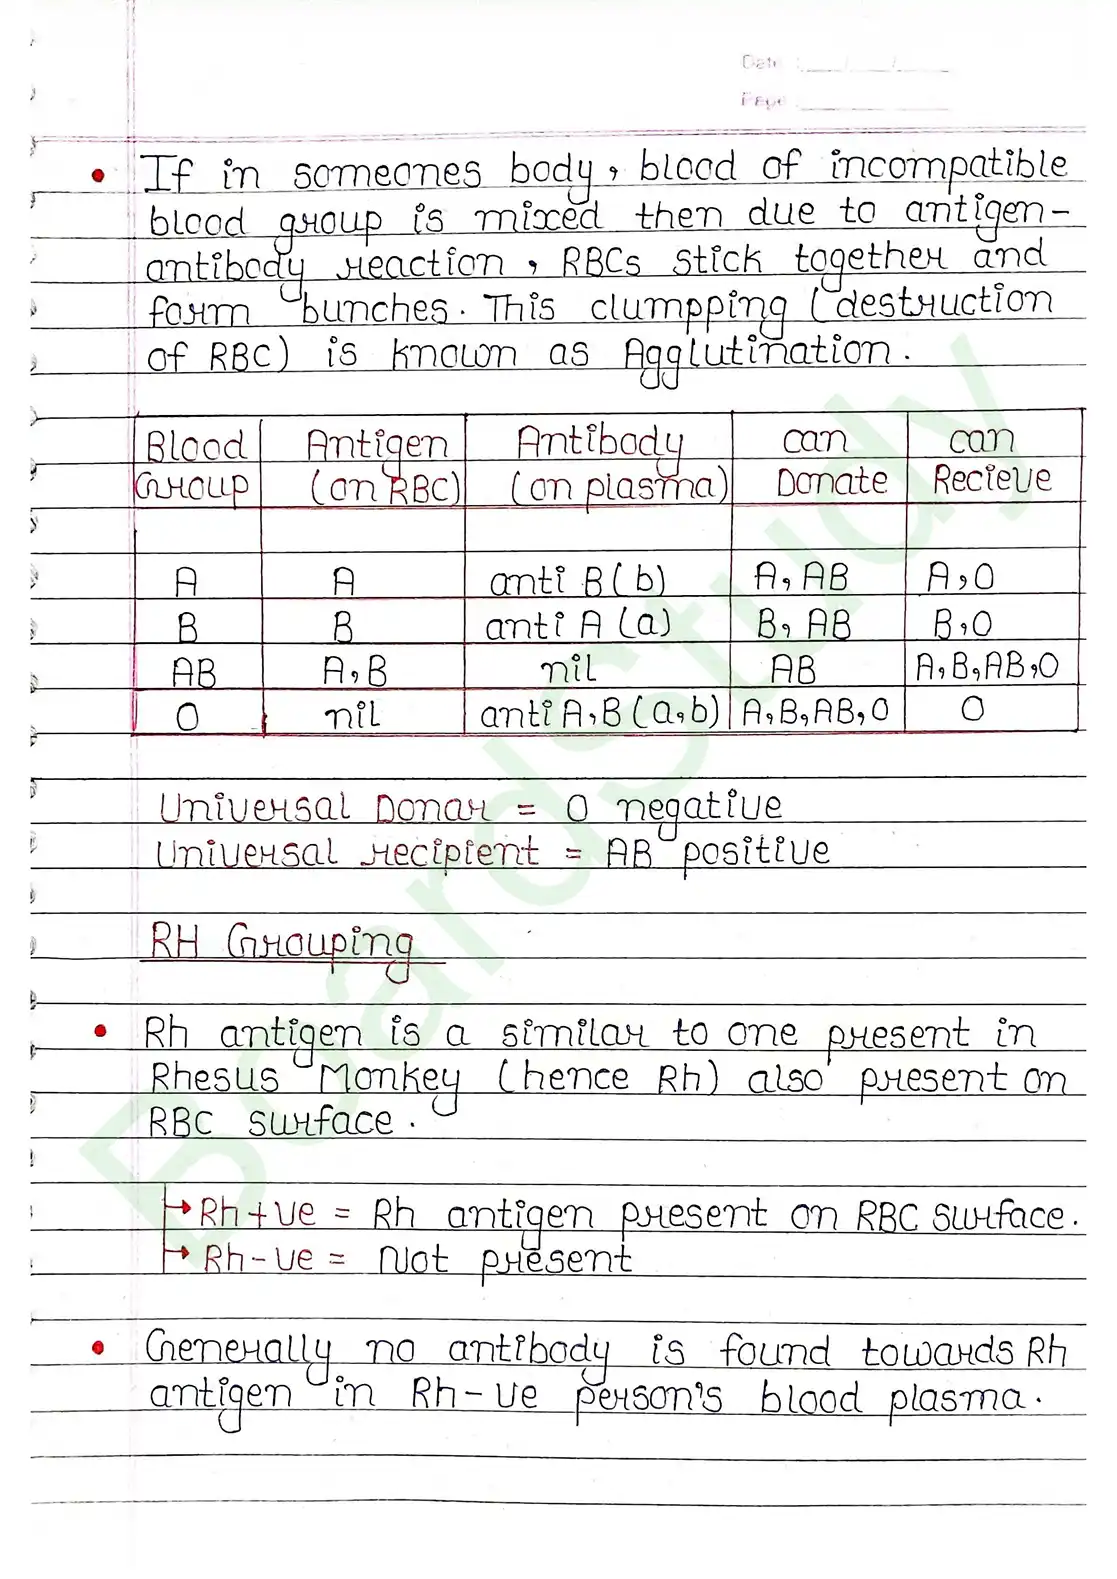 Date : ___/___/___
Page : ___
• If in someones body, blood of incompatible
blood group is mixed then due to antigen-
antibody reaction, RBCs stick together and
form bunches. This clumpping (destruction
of RBC) is known as Agglutination.
Blood Group | Antigen (on RBC) | Antibody (on plasma) | can Donate | can Recieve
A | A | anti B(b) | A, AB | A,O
B | B | anti A (a) | B, AB | B,O
AB | A,B | nil | AB | A,B,AB,O
O | nil | anti A,B (a,b) | A,B,AB,O | O
Universal Donar = O negative
Universal recipient = AB positive
RH Grouping
• Rh antigen is a similar to one present in
Rhesus Monkey (hence Rh) also present on
RBC surface.
→ Rh+ve = Rh antigen present on RBC surface.
→ Rh-ve = Not present
• Generally no antibody is found towards Rh
antigen in Rh-ve person's blood plasma.
BoardStudy